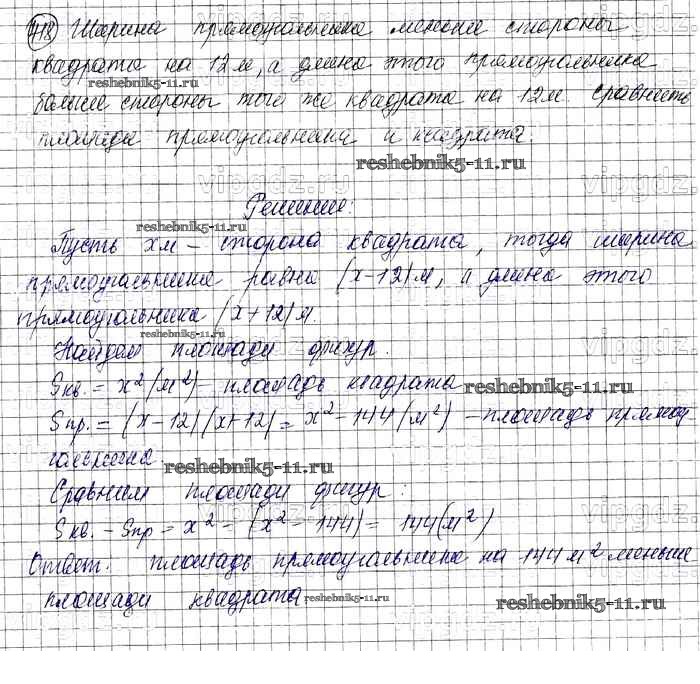 418 Ширина прямоугольника меньше стороны
квадрата на 12 м, а длина этого прямоугольника
reshebnik5-11.ru
больше стороны того же квадрата на 12 м. Сравнить
площади прямоугольника и квадрата.
reshebnik5-11.ru
vipgdz.ru
Решение:
reshebnik5-11.ru
Пусть х м – сторона квадрата, тогда ширина
прямоугольника равна (х-12) м, а длина этого
прямоугольника (х+12) м.
reshebnik5-11.ru
Найдем площади фигур.
Sкв. = х²(м²) – площадь квадрата
reshebnik5-11.ru
Sпр. = (х-12)(х+12) = х²-144(м²) – площадь прямоу-
гольника
reshebnik5-11.ru
Сравним площади фигур:
Sкв. - Sпр = х² - (х² - 144) = 144(м²)
Ответ. площадь прямоугольника на 144 м² меньше
площади квадрата
reshebnik5-11.ru
reshebnik5-11.ru